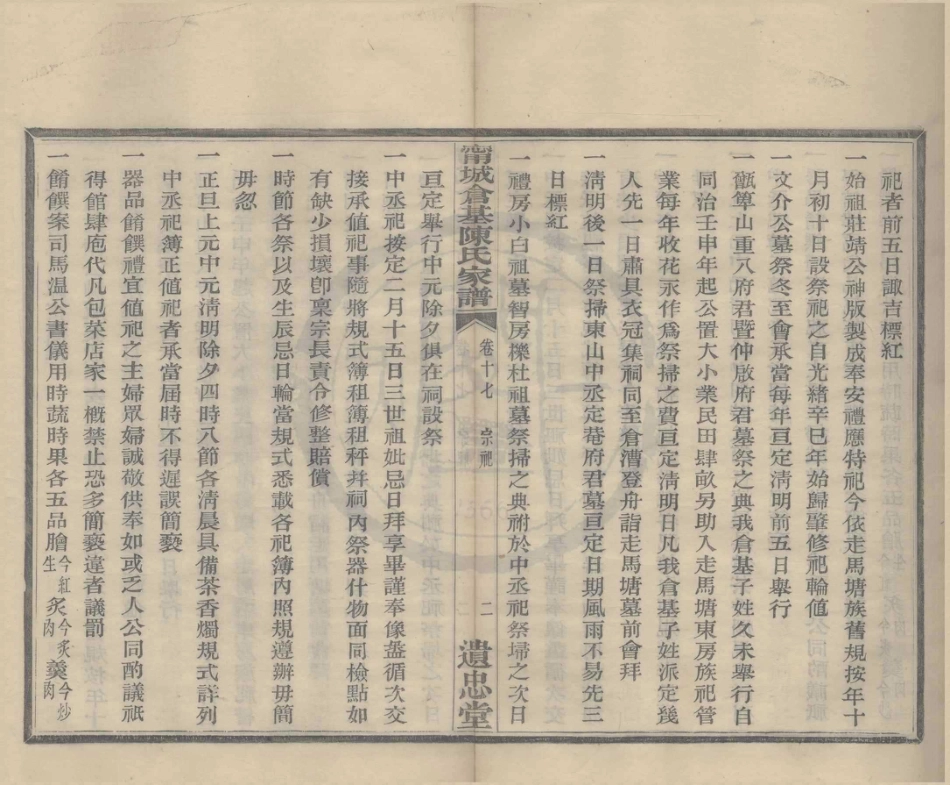 祀者前五日諏吉標紅
一始祖莊靖公神版製成奉安禮應特祀今依走馬塘族舊規按年十
月初十日設祭祀之自光緒辛巳年始歸肇修祀輪値
一文介公墓祭冬至會承當每年亘定淸明前五日舉行
一甑箄山重八府君暨仲啟府君墓祭之典我倉基子姓久未舉行自
同治壬申年起公置大小業民田肆畝另助入走馬塘東房族祀管
業每年收花永作爲祭掃之費亘定淸明日凡我倉基子姓派定幾
人先一日肅具衣冠集祠同至倉漕登舟詣走馬塘墓前會拜
一淸明後一日祭掃東山中丞定菴府君墓亘定日期風雨不易先三
日標紅
一禮房小白祖墓智房櫟杜祖墓祭掃之典祔於中丞祀祭埽之次日
甯城倉基陳氏家譜 卷十七 宗祀 二 遺忠堂
亘定舉行中元除夕俱在祠設祭
一中丞祀按定二月十五日三世祖妣忌日拜享畢謹奉像盝循次交
接承值祀事隨將規式簿租簿租秤幷祠內祭器什物面同檢點如
有缺少損壞卽稟宗長責令修整賠償
一時節各祭以及生辰忌日輪當規式悉載各祀簿內照規遵辦毋簡
毋忽
一正旦上元中元淸明除夕四時八節各淸晨具備茶香燭規式詳列
中丞祀簿正値祀者承當屆時不得遲誤簡褻
一器品餚饌禮宜値祀之主婦眾婦誠敬供奉如或乏人公同酌議祇
得館肆庖代凡包菜店家一槪禁止恐多簡褻違者議罰
一餚饌案司馬溫公書儀用時蔬時果各五品膾今紅生炙今炙肉羹今炒肉